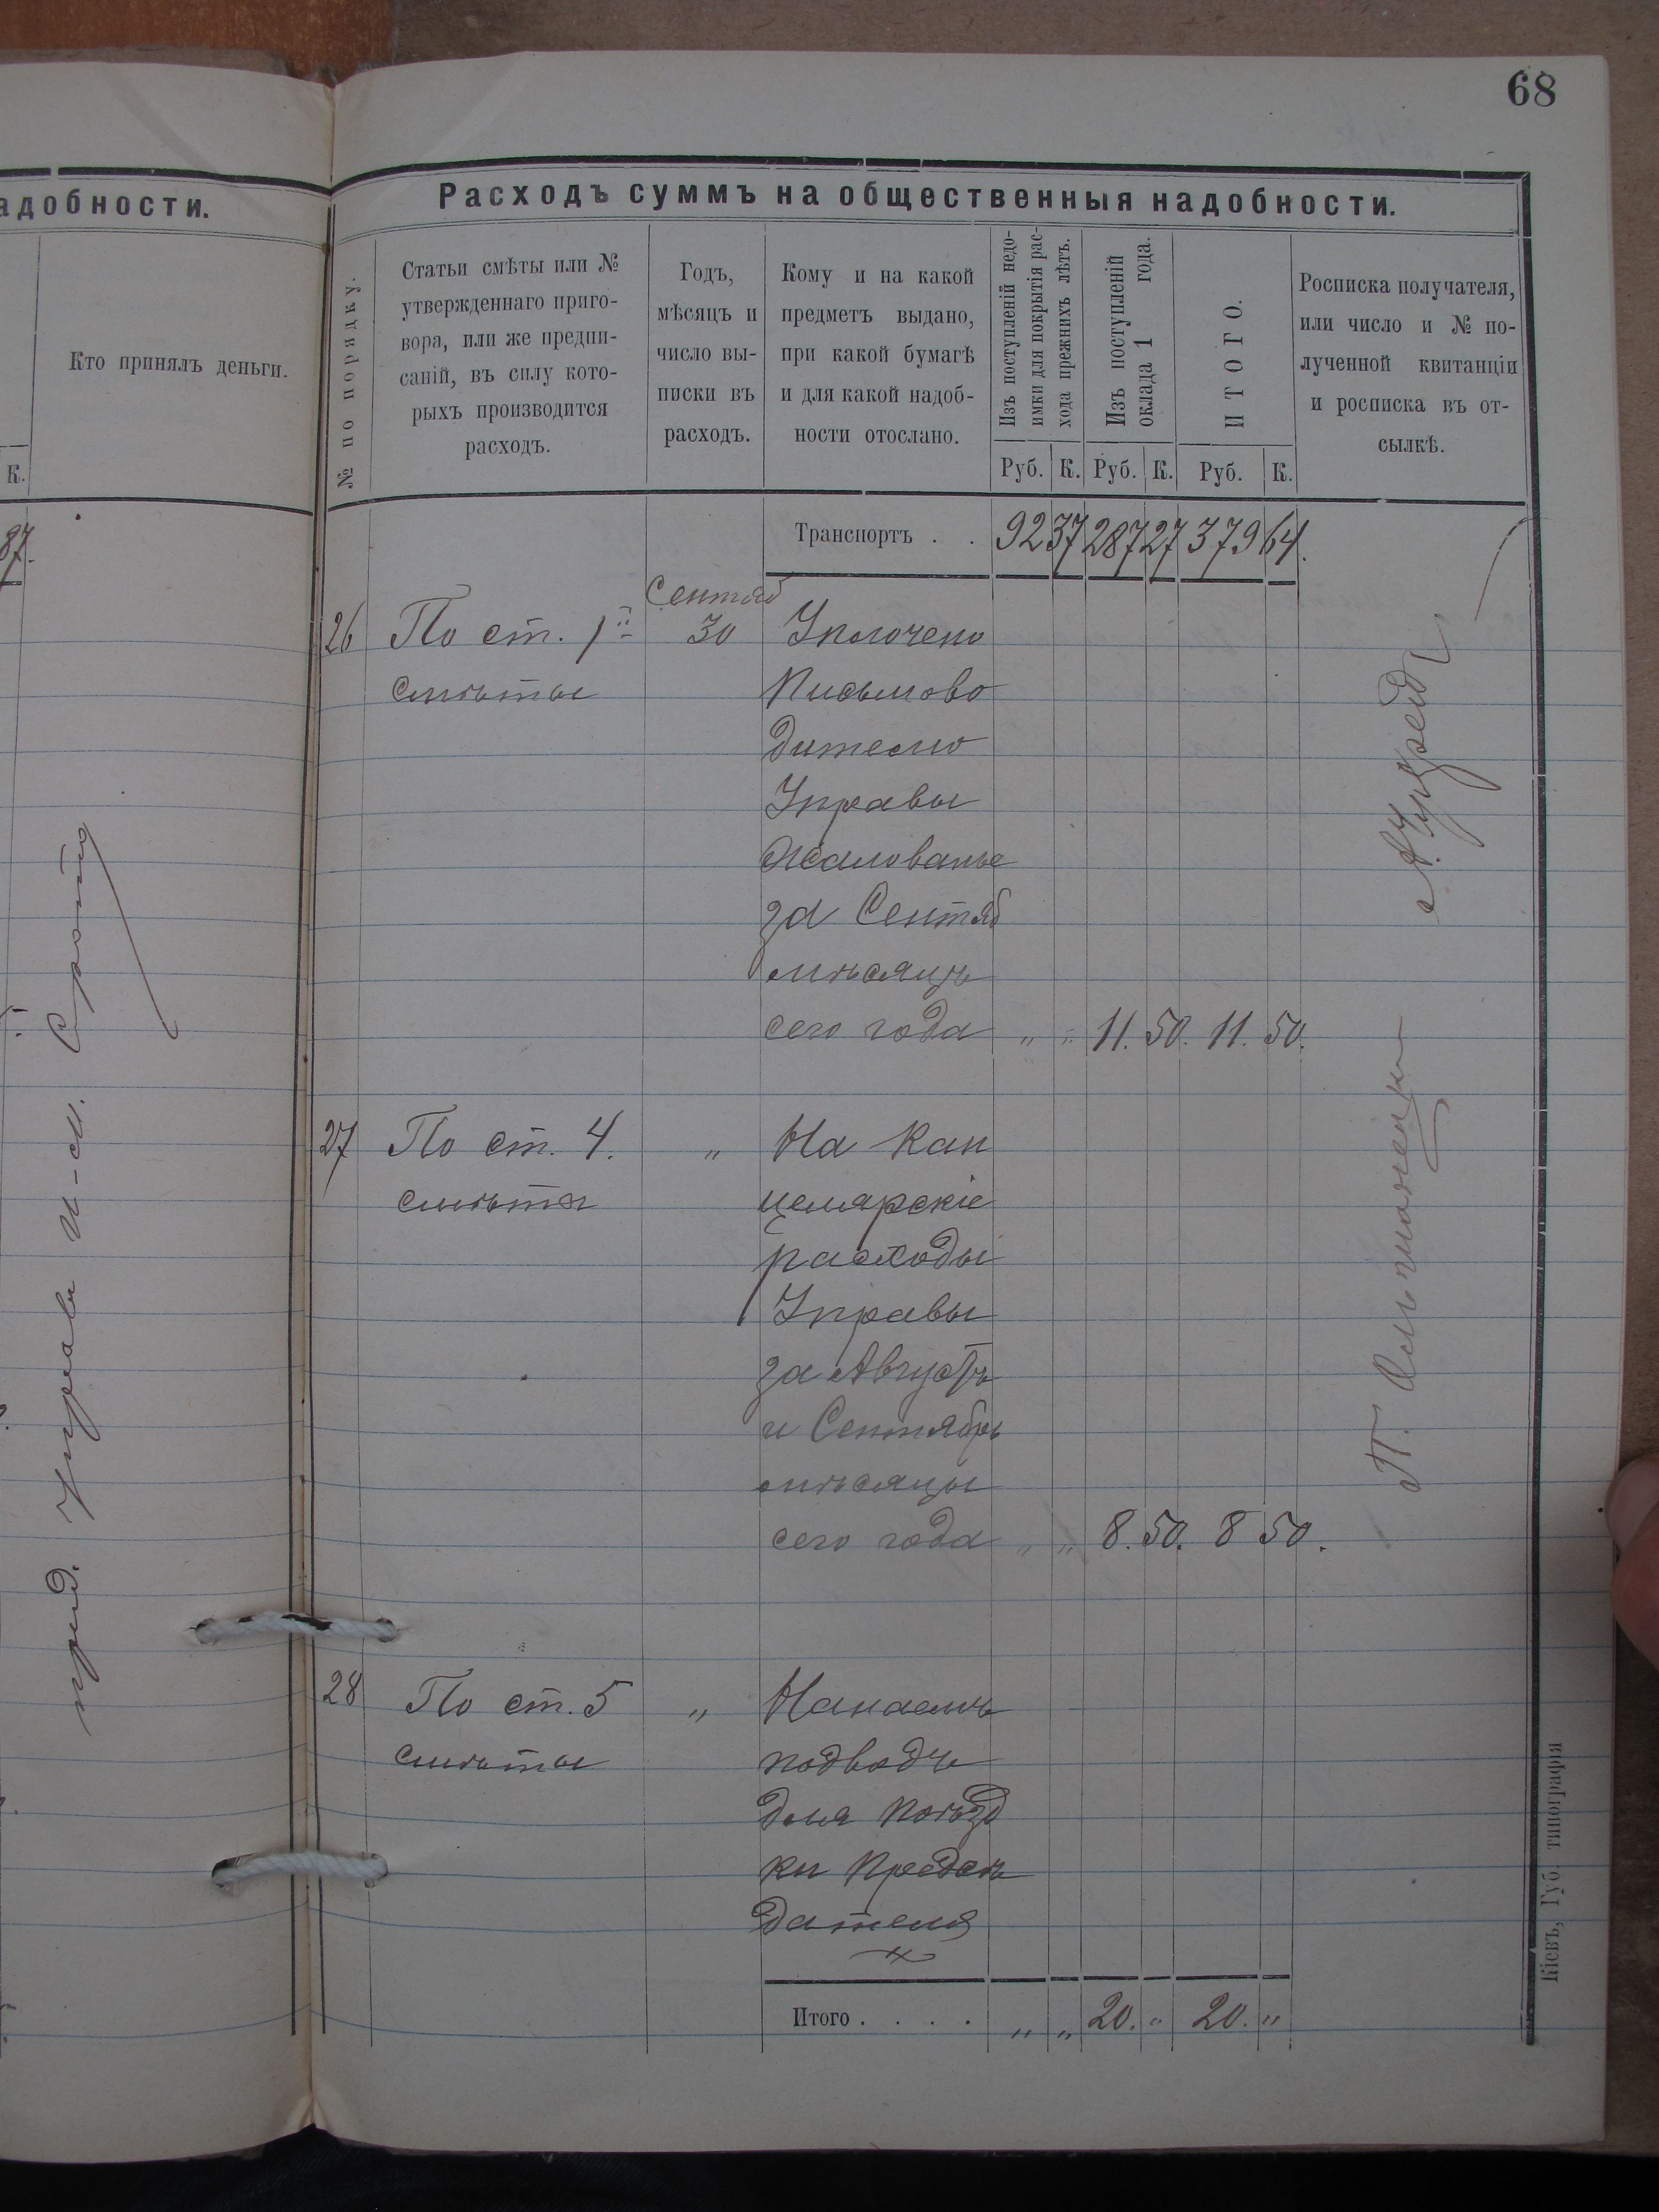 68
адобности.
Кто принялъ деньги.
К.
87.
Расходъ суммъ на общественныя надобности.
№ по порядку.
Статьи смѣты или №
утвержденнаго приго-
вора, или же предпи-
саній, въ силу кото-
рыхъ производится
расходъ.
Годъ,
мѣсяцъ и
число вы-
писки въ
расходъ.
Кому и на какой
предметъ выдано,
при какой бумагѣ
и для какой надоб-
ности отослано.
Изъ поступленій недо-
имки для покрытія рас-
хода прежнихъ лѣтъ.
Изъ поступленій
оклада 1 года.
ИТОГО.
Росписка получателя,
или число и № по-
лученной квитанціи
и росписка въ от-
сылкѣ.
Руб. К. Руб. К. Руб. К.
Транспортъ . . 92 37 287 27 379 64.
Сентяб
26 По ст. 1й 30 Уплочено
смѣты Письмово
дителю
Управы
Жалованье
за Сентяб
мѣсяцъ
сего года " " 11. 50. 11. 50.
27 По ст. 4. " На Кан
смѣты целярскіе
расходы
Управы
за Августъ
и Сентябрь
мѣсяцы
сего года " " 8. 50. 8 50.
28 По ст. 5 " Нанаемъ
смѣты подводъ
для поѣзд
ки Предсѣ
дателя
Итого . . . . " " 20. " 20. "
Кіевъ, Губ. типографія